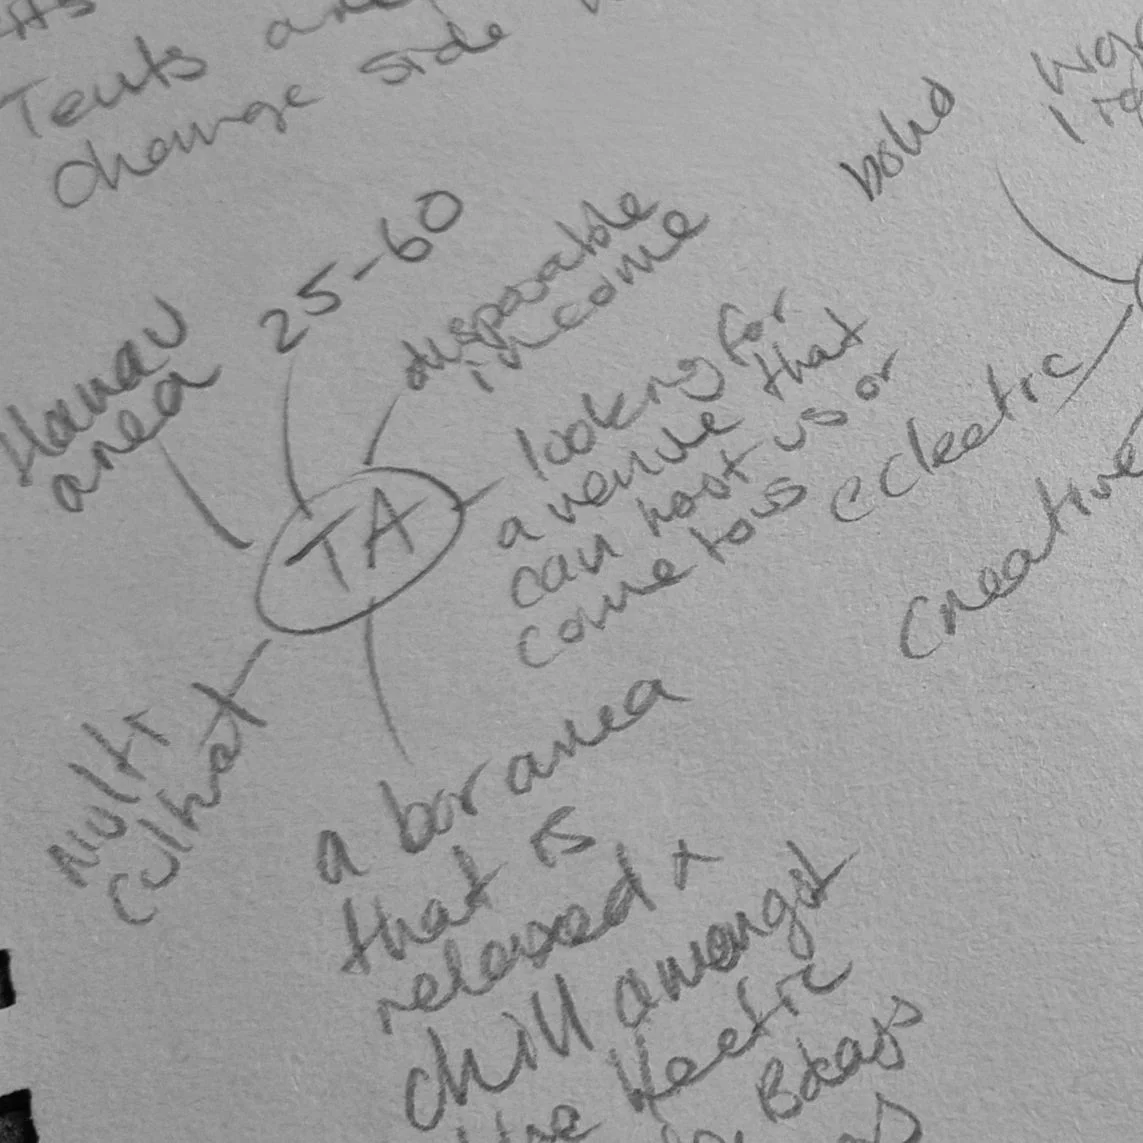 Tents are
change side
boho
25-60
disposable
income
area
looking for
a venue that
can host us or
come to us
TA
eclectic
creative
multi
cultral
a bar area
that is
relaxed +
chill amongst
the Hectic